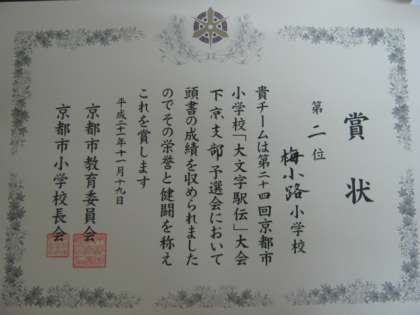 賞状
第二位
梅小路小学校
貴チームは第二十四回京都市
小学校「大文字駅伝」大会
下京支部予選会において
頭書の成績を収められました
のでその栄誉と健闘を称え
これを賞します
平成二十一年十一月十九日
京都市教育委員会
京都市小学校長会